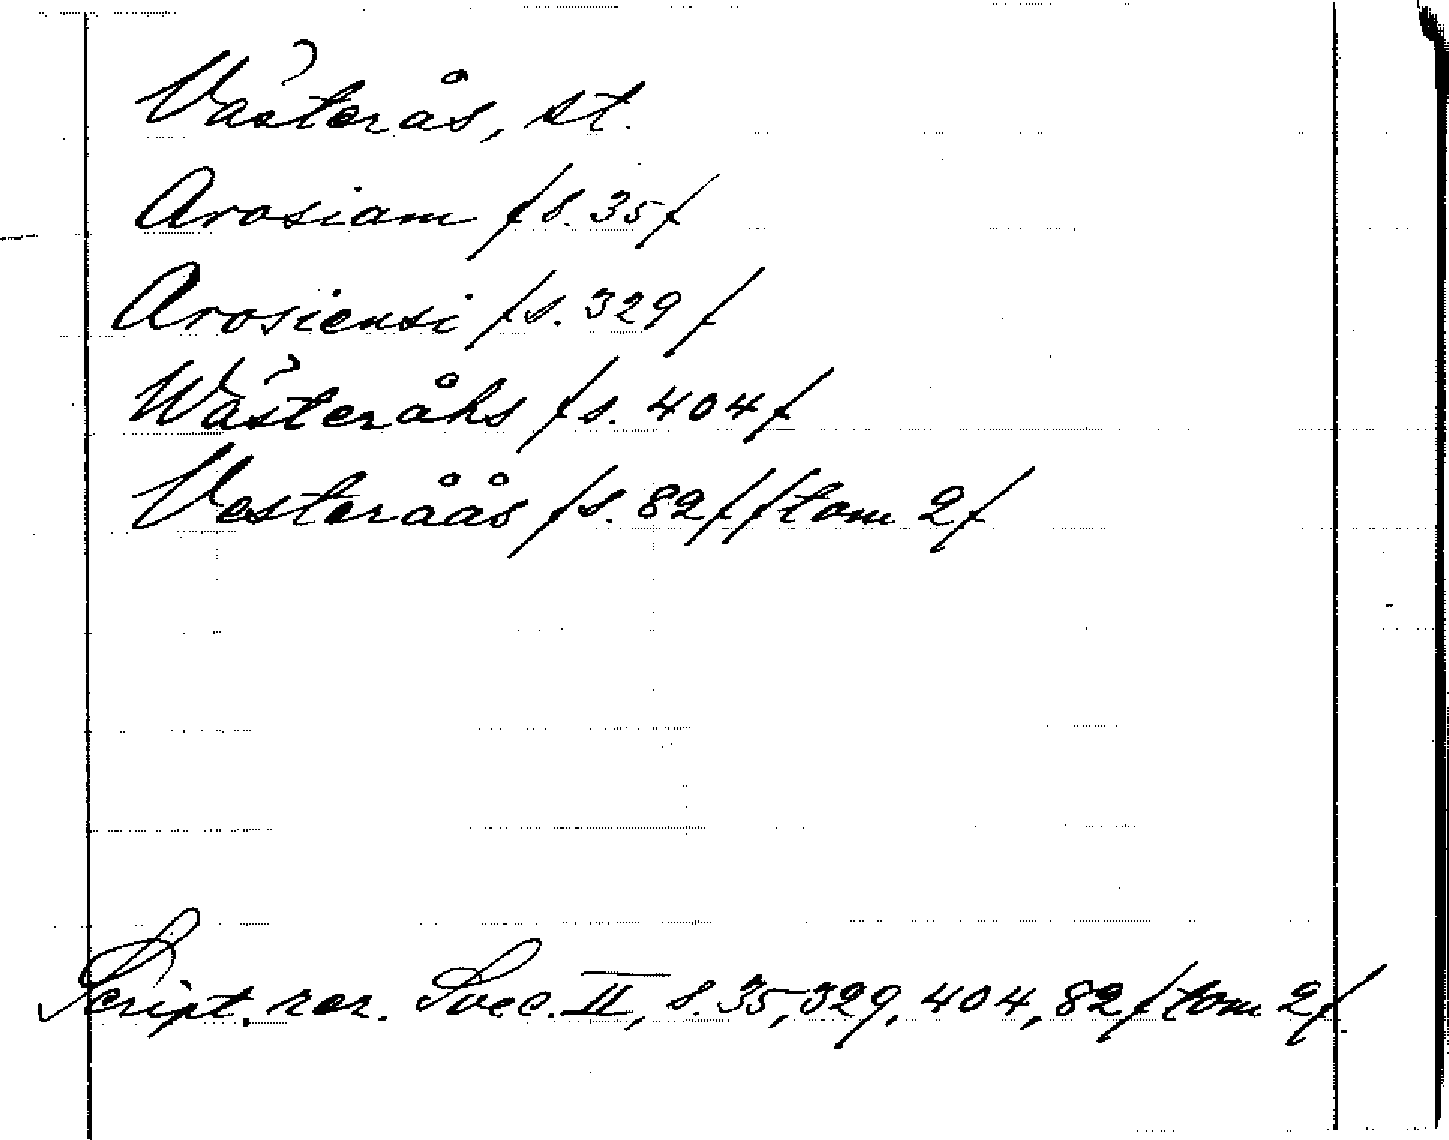 Västerås, st.
Arosiam /s. 35/
Arosiensi /s. 329/
Wästeråhs /s. 404/
Vesteråås /s. 82/ /tom 2/
Script. rer. Svec. II, s. 35, 329, 404, 82 /tom 2/.